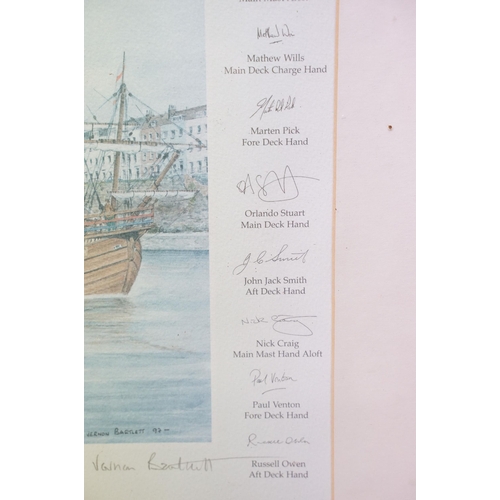 Mathew Wills
Main Deck Charge Hand
Marten Pick
Fore Deck Hand
Orlando Stuart
Main Deck Hand
J C Smith
John Jack Smith
Aft Deck Hand
Nick Craig
Main Mast Hand Aloft
Paul Venton
Paul Venton
Fore Deck Hand
Russell Owen
Aft Deck Hand
VERNON BARGETT 97
Vernon